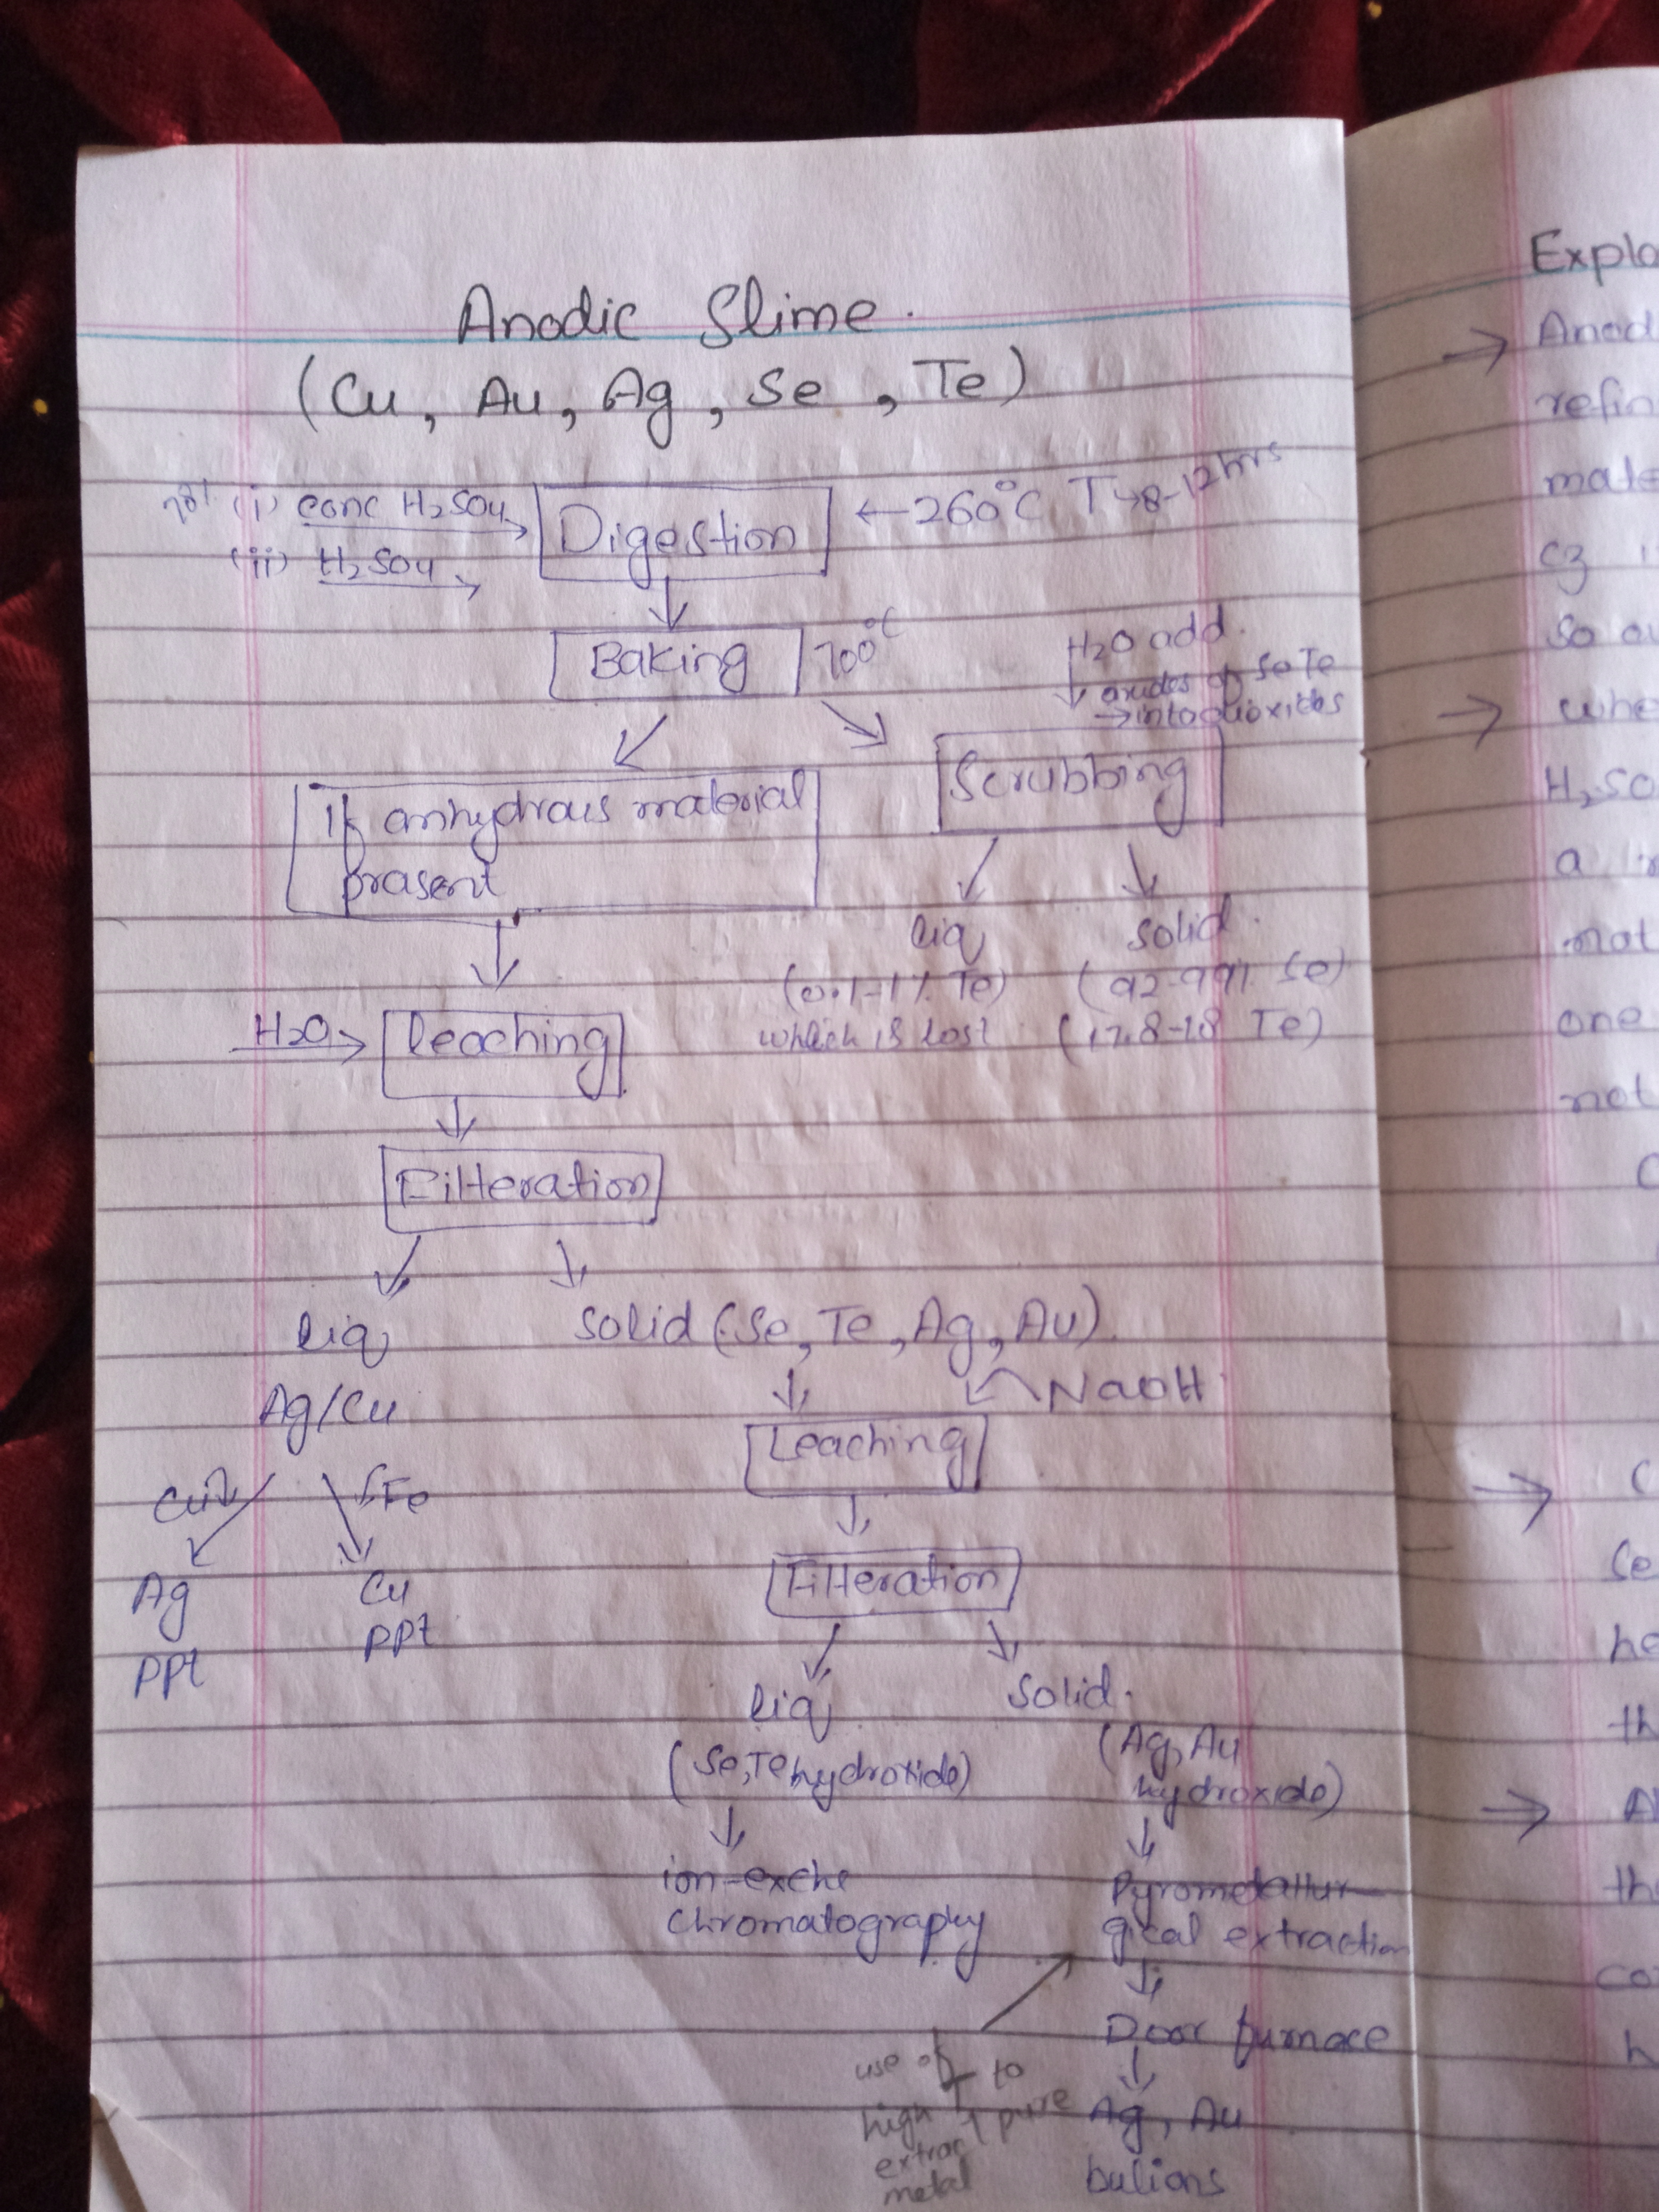 Anodic Slime.
(Cu, Au, Ag, Se, Te)
(i) conc H2SO4
(ii) H2SO4
Digestion
260°C T→8-12hrs
Baking
700°C
H2O add.
oxides of Se Te
→ into dioxides
If anhydrous material
present
Scrubbing
liq
(0.1-1% Te)
which is lost
solid.
(92-99% Se)
(17.8-18 Te)
H2O
leaching
Filteration
liq
Ag/Cu
Cu
Ag
PPt
Fe
Cu
PPt
Solid (Se, Te, Ag, Au)
NaOH
Leaching
Filteration
liq
(Se, Te hydroxide)
ion-exche
Chromatography
Solid.
(Ag, Au
hydroxide)
Pyrometallur-
gical extraction
Door furnace
Ag, Au
bulions
use of
high T to
extract pure
metal
Explo
Anod
refin
mate
cz
so
whe
H2SO
a
not
one
not
C
C
Se
he
th
A
th
co
h